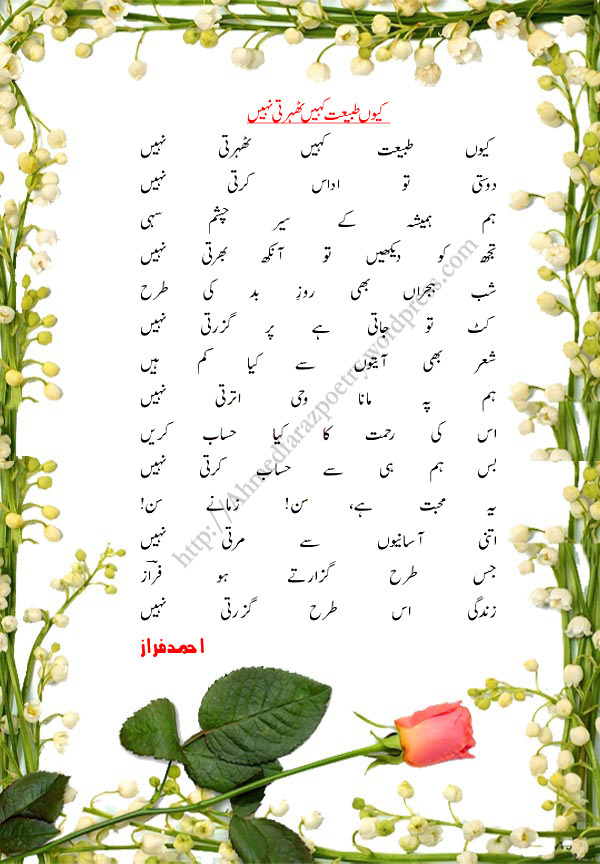 کیوں طبیعت کہیں ٹھہرتی نہیں
کیوں طبیعت کہیں ٹھہرتی نہیں
دوستی تو اداس کرتی نہیں
ہم ہمیشہ کے سیر چشم سہی
تجھ کو دیکھیں تو آنکھ بھرتی نہیں
شب ہجراں بھی روزِ بد کی طرح
کٹ تو جاتی ہے پر گزرتی نہیں
شعر بھی آیتوں سے کیا کم ہیں
ہم پہ مانا وحی اترتی نہیں
اس کی رحمت کا کیا حساب کریں
بس ہم ہی سے حساب کرتی نہیں
یہ محبت ہے، سن! زمانے سن!
اتنی آسانیوں سے مرتی نہیں
جس طرح گزارتے ہو فراؔز
زندگی اس طرح گزرتی نہیں
احمدفراز
http://Ahmedfarazpoetry.wordpress.com